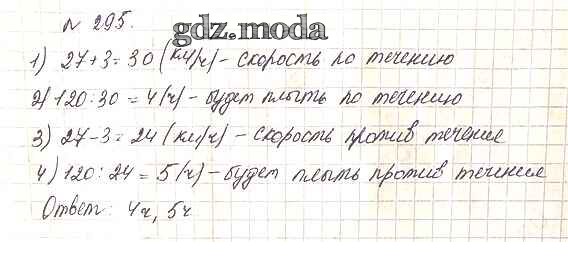 № 295.
gdz.moda
1) 27+3=30 (км/ч) - скорость по течению
2) 120:30=4(ч) - будет плыть по течению
3) 27-3=24 (км/ч) - скорость против течение
4) 120:24=5(ч) - будет плыть против течения
Ответ: 4ч, 5ч